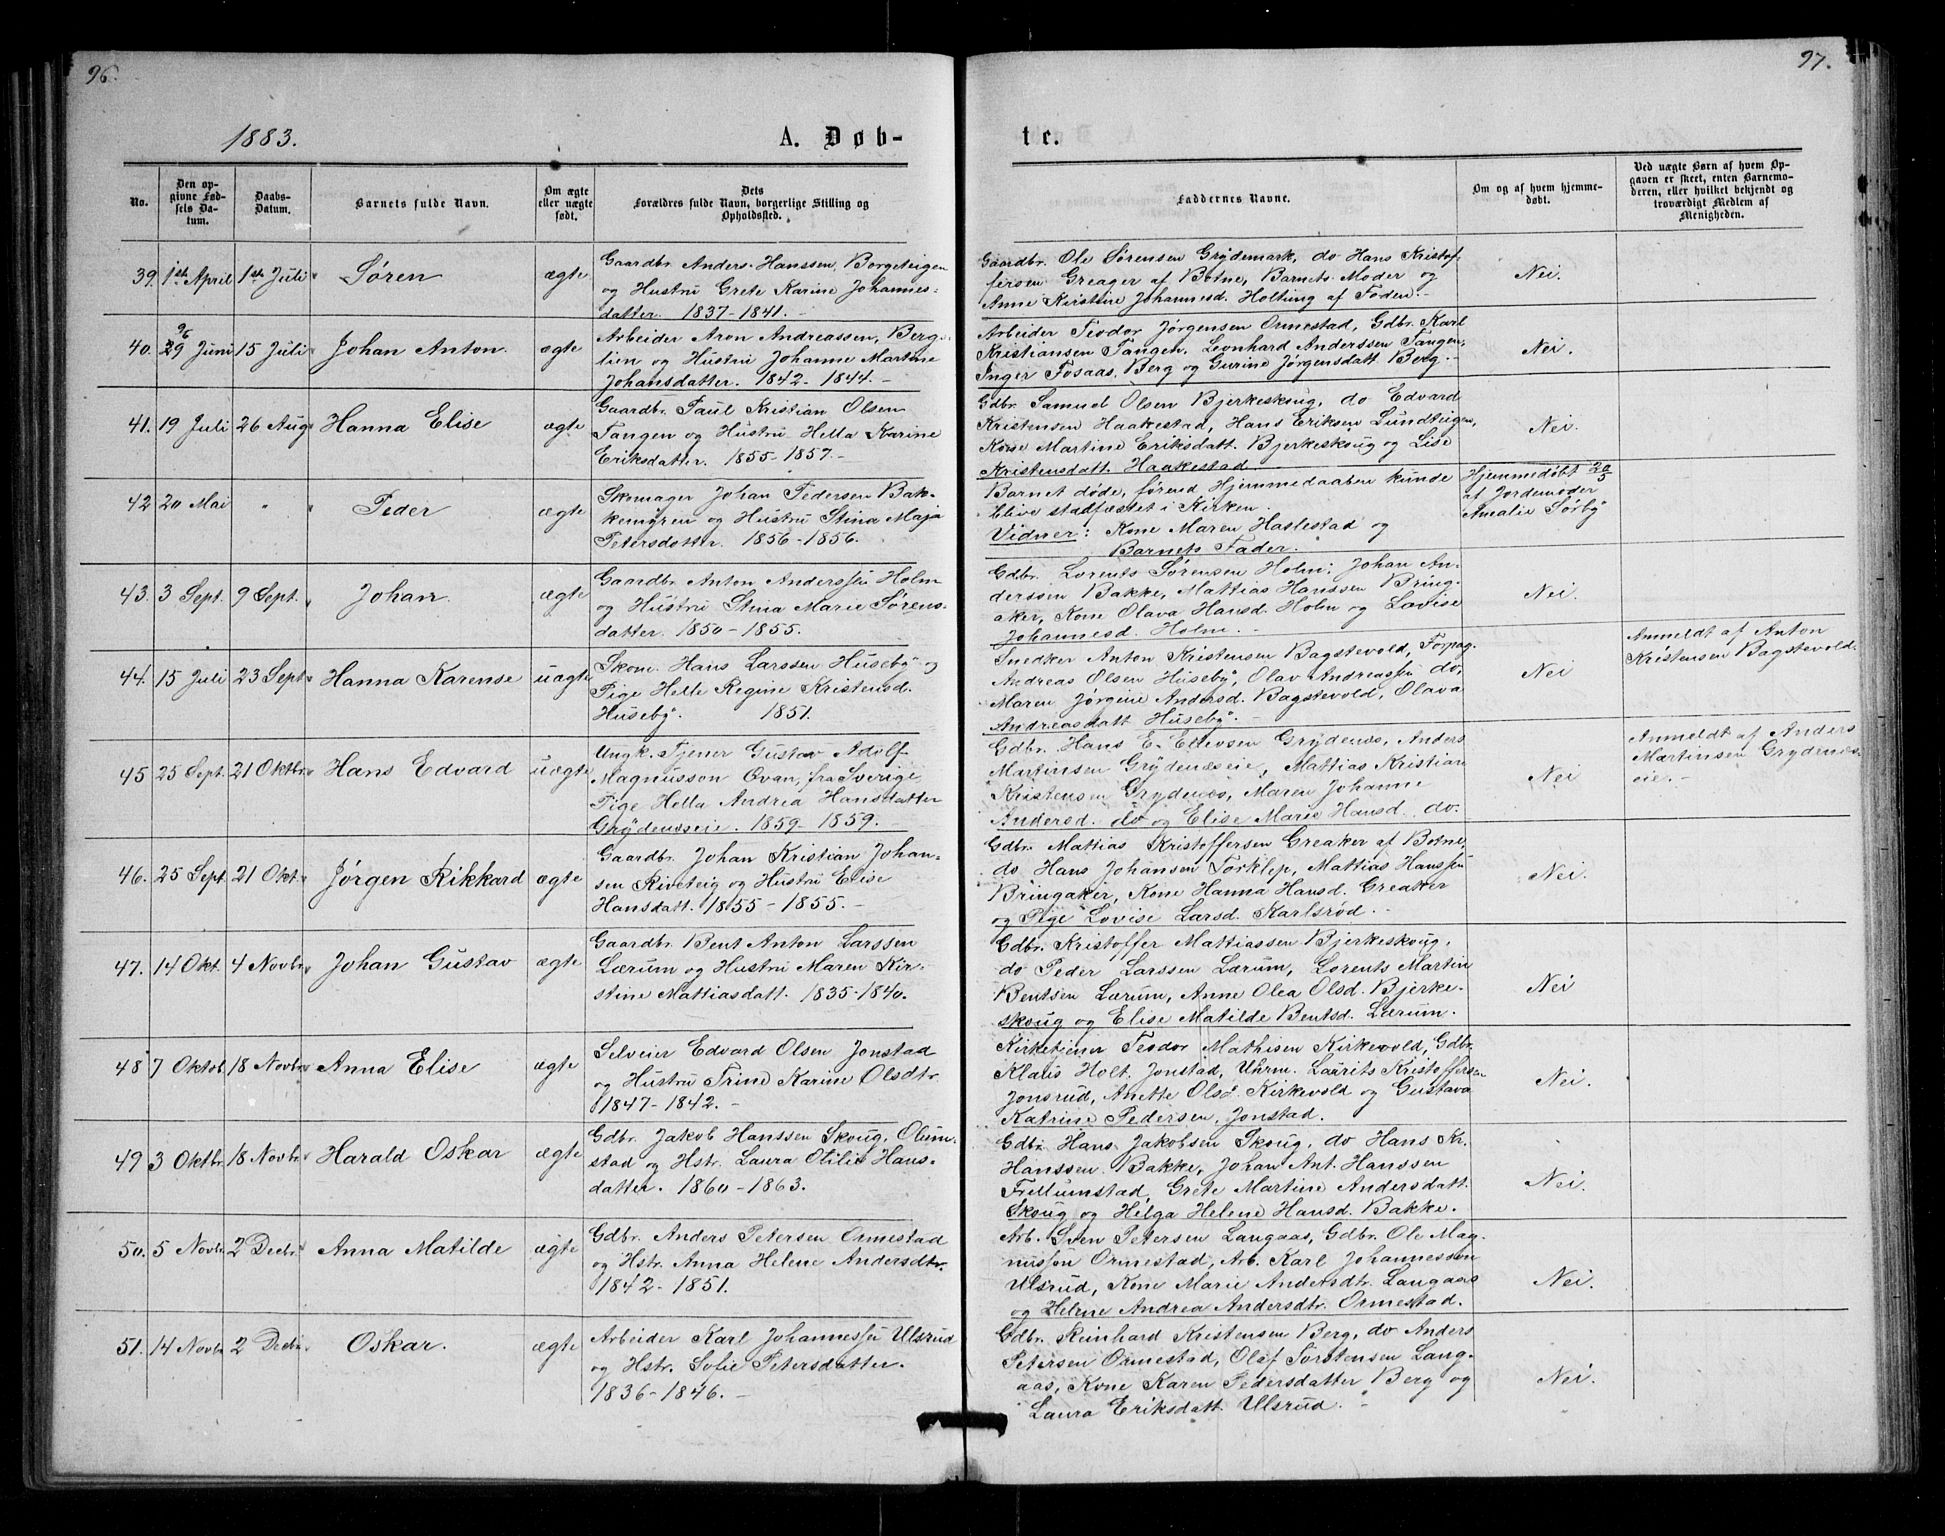 96.
1883.
A. Døb-
No.
Den op-
givne Fød-
sels Da-
tum.
Daabs-
Datum.
Barnets fulde Navn.
Om ægte
eller uægte
født.
Dets
Forældres fulde Navn, borgerlige Stilling og
Opholdssted.
39. 1ste April 1ste Juli Søren ægte
Gaardbr. Anders Hanssen, Borgeteigen
og Hustru Grete Karine Johannes-
datter. 1837-1841.
40. 29 Juni 15 Juli Johan Anton. ægte
Arbeider Aron Andreassen, Berg-
lien og Hustru Johanne Martine
Johansdatter. 1842-1844.
41. 19 Juli 26 Aug Hanna Elise ægte
Gaardbr. Paul Kristian Olsen
Tangen og Hustru Hella Karine
Eriksdatter. 1855-1857.
42 20 Mai " " Peder ægte
Skomager Johan Pedersen Bak-
kemyren og Hustru Stina Maja
Petersdatter. 1856-1856.
43. 3 Sept. 9 Sept. Johan ægte
Gaardbr. Anton Anderssen Holm
og Hustru Stina Marie Sørens-
datter. 1850-1855.
44. 15 Juli 23 Sept Hanna Karense uægte
Skom. Hans Larssen Huseby og
Pige Helle Regine Kristensd.
Huseby. 1851.
45 25 Sept. 21 Oktbr Hans Edvard uægte
Ungk. Tjener Gustav Adolf
Magnusson Ovan, fra Sverige
Pige Hella Andrea Hansdatter
Grydenæseie. 1859-1859.
46. 25 Sept. 21 Okt. Jørgen Rikkard ægte
Gaardbr. Johan Kristian Johan-
sen Riveteig og Hustru Elise
Hansdatt. 1855-1855.
47. 14 Okt. 4 Novbr Johan Gustav ægte
Gaardbr. Bent Anton Larssen
Lærum og Hustru Maren Kir-
stine Mattiasdatt. 1835-1840.
48 7 Oktob 18 Novbr Anna Elise ægte
Selveier Edvard Olsen Jonstad
og Hustru Trine Karine Olsdtr.
1847-1842.
49 3 Oktbr. 18 Novbr. Harald Oskar ægte
Gdbr. Jakob Hanssen Skoug, Olum-
stad og Hstr. Laura Otilie Hans-
datter. 1860-1863.
50. 5 Novbr. 2 Decbr. Anna Matilde ægte
Gdbr. Anders Petersen Ormestad
og Hstr. Anna Helene Andersdtr.
1842-1851.
51. 14 Novbr 2 Decbr. Oskar. ægte
Arbeider Karl Johannessen Ulsrud
og Hstr. Sofie Petersdatter.
1836-1846.
97.
te.
Faddernes Navne.
Om og af hvem hjemme-
døbt.
Ved uægte Børn af hvem Op-
gaven er skeet, enten Barnemo-
deren, eller hvilket bekjendt og
troværdigt Medlem af
Menigheden.
Gaardbr. Ole Sørensen Grydemark, do Hans Kristof-
fersen Greager af Botne, Barnets Moder og
Anne Kirstine Johannesd. Holtung af Foden.
Nei.
Arbeider Teodor Jørgensen Ormestad, Gdbr. Karl
Kristiansen Tangen, Leonhard Anderssen Tangen,
Inger Fosaas, Berg og Gurine Jørgensdatt Berg.
Nei.
Gdbr. Samuel Olsen Bjerkeskoug, do Edvard
Kristensen Haakestad, Hans Eriksen Lundteigen,
Kone Martine Eriksdatt. Bjerkeskoug og Lise
Kristensdatt. Haakestad
Nei.
Barnet døde, førend Hjemmedaaben kunde
blive stadfæstet i Kirken.
Vidner: Kone Maren Haslestad og
Barnets Fader.
Hjemmedøbt 20/5
af Jordemoder
Amalie Sørby
Gdbr. Lorents Sørensen Holm, Johan An-
derssen Bakke, Mattias Hanssen Bring-
aker, Kone Olava Hansd. Holm og Lovise
Johannesd. Holm.
Nei.
Snedker Anton Kristensen Bagstevold, Forpag.
Andreas Olsen Huseby, Olav Andreassen do,
Maren Jørgine Andersd. Bagstevold, Olava
Andreasdatt Huseby.
Nei
Anmeldt af Anton
Kristensen Bagstevold.
Gdbr. Hans E. Ellevsen Grydenæs, Anders
Martinsen Grydenæseie, Mattias Kristian
Kristensen Grydenæs, Maren Johanne
Andersd. do og Elise Marie Hansd. do.
Nei
Anmeldt af Anders
Martinsen Grydenæs-
eie.
Gdbr. Mattias Kristoffersen Greaker af Botne,
do. Hans Johansen Torklep, Mattias Hanssen
Bringaker, Kone Hanna Hansd. Greaker
og Pige Lovise Larsd. Karlsrød.
Nei.
Gdbr. Kristoffer Mattiassen Bjerkeskoug,
do Peder Larssen Lærum, Lorents Martin
Bentsen Lærum, Anne Olea Olsd. Bjerke-
skoug og Elise Matilde Bentsd. Lærum.
Nei
Kirketjener Teodor Mathisen Kirkevold, Gdbr
Klaus Holt. Jonstad, Uhrm. Laurits Kristoffersen
Jonsrud, Anette Olsd. Kirkevold og Gustava
Katrine Pedersen, Jonstad.
Nei.
Gdbr. Hans Jakobsen Skoug, do Hans Kr.
Hanssen Bakke, Johan Ant. Hanssen
Frellumstad, Grete Martine Andersdatt.
Skoug og Helga Helene Hansd. Bakke.
Nei.
Arb. Sven Petersen Langaas, Gdbr. Ole Mag-
nussen Ormestad, Arb. Karl Johannessen
Ulsrud, Kone Marie Andersdtr. Langaas
og Helene Andrea Andersdtr. Ormestad.
Nei.
Gdbr. Reinhard Kristensen Berg, do Anders
Petersen Ormestad, Olaf Torstensen Lang-
aas, Kone Karen Pedersdatter Berg og
Laura Eriksdatt. Ulsrud.
Nei.